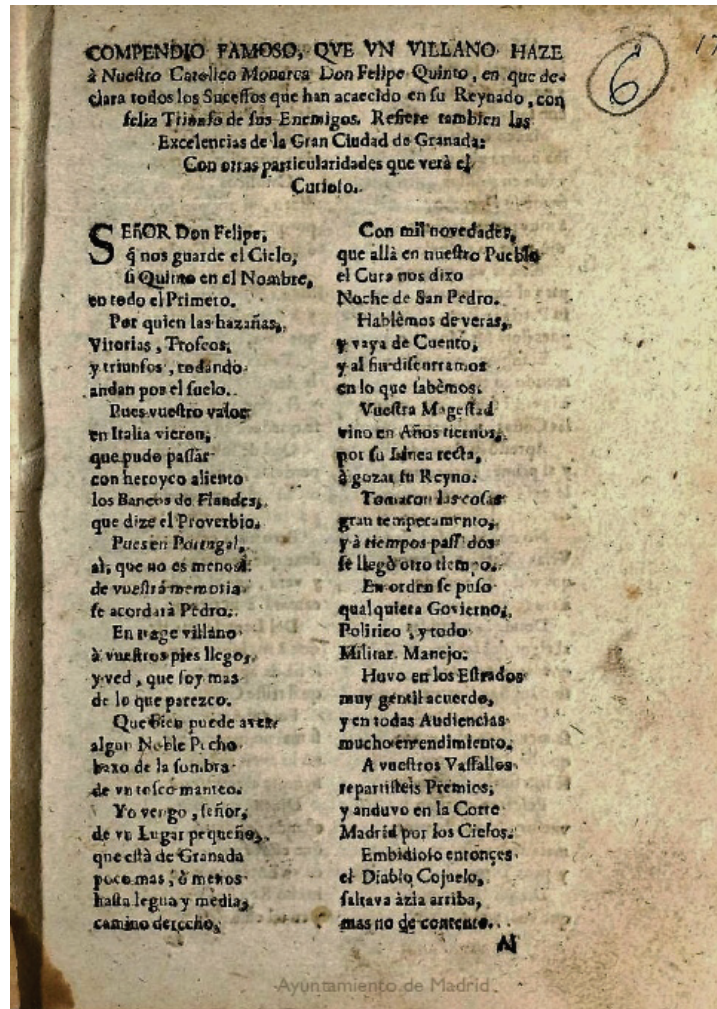 17
6
COMPENDIO FAMOSO, QVE VN VILLANO HAZE
à Nuestro Catolico Monarca Don Felipe Quinto, en que de-
clara todos los Sucessos que han acaecido en su Reynado, con
feliz Triunfo de sus Enemigos. Refiere tambien las
Excelencias de la Gran Ciudad de Granada:
Con otras particularidades que verà el
Curioso.
SEñOR Don Felipe,
q̃ nos guarde el Cielo,
si Quinto en el Nombre,
en todo el Primero.
Por quien las hazañas,
Vitorias, Trofeos,
y triunfos, rodando
andan por el suelo.
Pues vuestro valor
en Italia vieron,
que pudo passàr
con heroyco aliento
los Bancos de Flandes,
que dize el Proverbio.
Pues en Portugal,
al, que no es menos:
de vuestra memoria
se acordarà Pedro.
En trage villano
à vuestros pies llego,
y ved, que soy mas
de lo que parezco.
Que bien puede aver
algun Noble Pecho
baxo de la sombra
de vn tosco manteo.
Yo vengo, señor,
de vn Lugar pequeño,
que està de Granada
poco mas, ò menos
hasta legua y media,
camino derecho,
Con mil novedades,
que allà en nuestro Pueblo
el Cura nos dixo
Noche de San Pedro.
Hablèmos de veras,
y vaya de Cuento,
y al fin discurramos
en lo que sabèmos.
Vuestra Magestad
vino en Años tiernos,
por su Linea recta,
à gozar su Reyno.
Tomaron las cosas
gran temperamento,
y à tiempos passados
se llegò otro tiempo.
En orden se puso
qualquiera Govierno,
Politico, y todo
Militar Manejo.
Huvo en los Estrados
muy gentil acuerdo,
y en todas Audiencias
mucho entendimiento.
A vuestros Vassallos
repartisteis Premios,
y anduvo en la Corte
Madrid por los Cielos.
Embidioso entonçes
el Diablo Cojuelo,
saltava àzia arriba,
mas no de contento.
Al
Ayuntamiento de Madrid